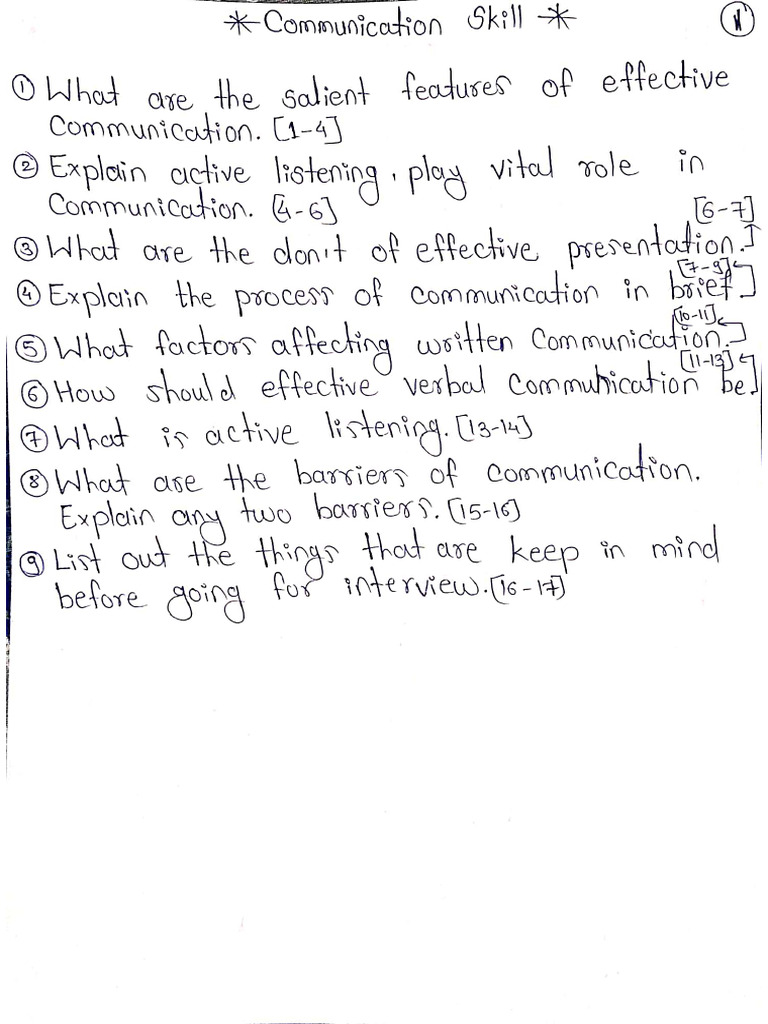 * Communication Skill *
① What are the salient features of effective
Communication. [1-4]
② Explain active listening, play vital role in
Communication. [4-6]
[6-7]
③ What are the don't of effective presentation.
[7-9]
④ Explain the process of communication in brief
[10-11]
⑤ What factors affecting written communication.
[11-13]
⑥ How should effective verbal communication be
⑦ What is active listening. [13-14]
⑧ What are the barriers of communication.
Explain any two barriers. [15-16]
⑨ List out the things that are keep in mind
before going for interview. [16-17]